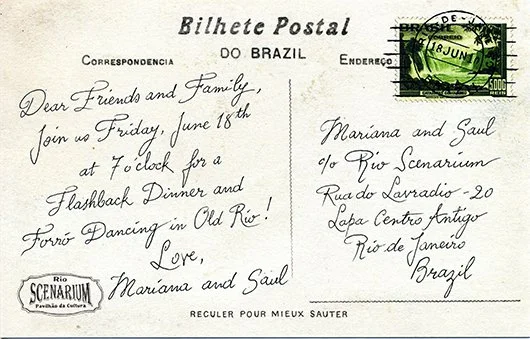 Bilhete Postal
DO BRAZIL
CORRESPONDENCIA
ENDEREÇO
BRASIL
CORREIO
18 JUN
5000
Dear Friends and Family,
Join us Friday, June 18th
at 7 o'clock for a
Flashback Dinner and
Forró Dancing in Old Rio!
Love,
Mariana and Saul
Mariana and Saul
c/o Rio Scenarium
Rua do Lavradio - 20
Lapa Centro Antigo
Rio de Janeiro
Brazil
Rio
SCENARIUM
Pavilhão da Cultura
RECULER POUR MIEUX SAUTER